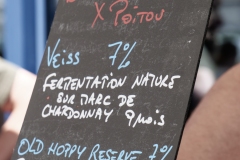 X POITOU
VEISS 7%
FERMENTATION NATURE
SUR MARC DE
CHARDONNAY 9 MOIS
OLD HOPPY RESERVE 7%